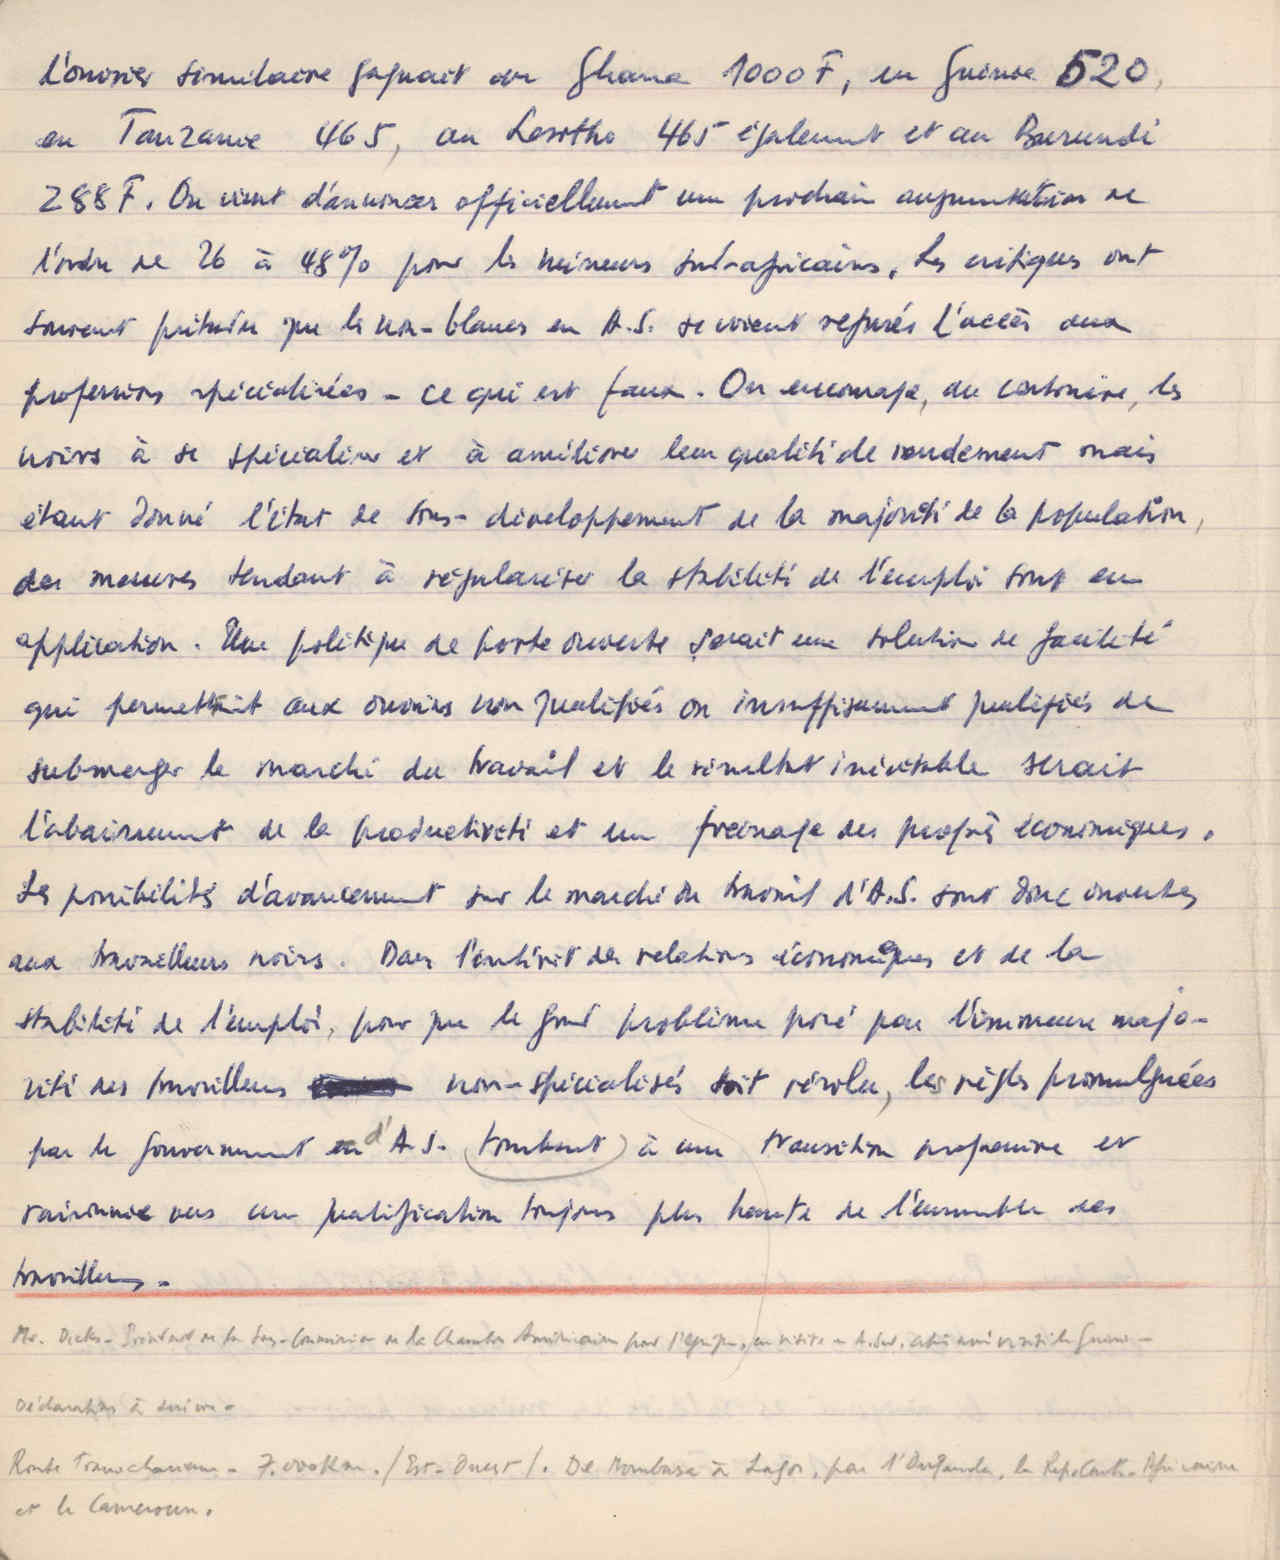 l'ouvrier similaire gagnait au Ghana 1000 F, en Guinée 520,
en Tanzanie 465, au Lesotho 465 également et au Burundi
288 F. On vient d'annoncer officiellement une prochaine augmentation de
l'ordre de 26 à 48% pour les mineurs sud-africains. Les critiques ont
souvent prétendu que les non-blancs en A.S. se voient refusés l'accès aux
professions spécialisées - ce qui est faux. On encourage, au contraire, les
noirs à se spécialiser et à améliorer leur qualité de rendement mais
étant donné l'état de sous-développement de la majorité de la population,
des mesures tendant à régulariser la stabilité de l'emploi sont en
application. Une politique de porte ouverte serait une solution de facilité
qui permettrait aux ouvriers non qualifiés ou insuffisamment qualifiés de
submerger le marché du travail et le résultat inévitable serait
l'abaissement de la productivité et un freinage des progrès économiques.
Les possibilités d'avancement sur le marché du travail d'A.S. sont donc ouvertes
aux travailleurs noirs. Dans l'intérêt des relations économiques et de la
stabilité de l'emploi, pour que le grand problème posé par l'immense majo-
rité des travailleurs non-spécialisés soit résolu, les règles promulguées
par le Gouvernement d'A.S. tombent à une transition progressive et
raisonnée vers une qualification toujours plus haute de l'ensemble des
travailleurs.
Mr. Diggs - Président de la Sous-Commission de la Chambre Américaine pour l'Afrique, en visite en A.Sud,
Déclaration à suivre -
Route Transafricaine - 7.000 Km. /Est-Ouest/. De Mombasa à Lagos, par l'Ouganda, la Rep. Centr-Africaine
et le Cameroun.